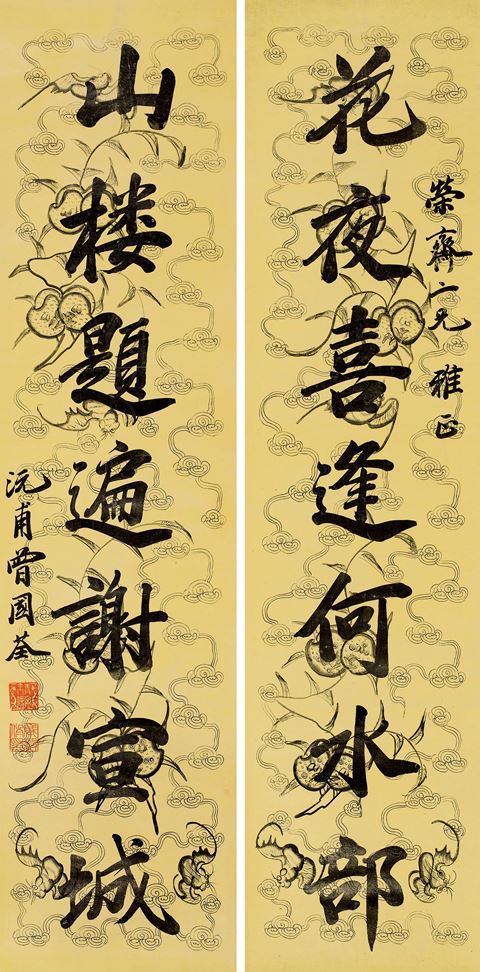 榮齋仁兄雅正
花夜喜逢何水部
山楼題遍謝宣城
沅甫曾國荃